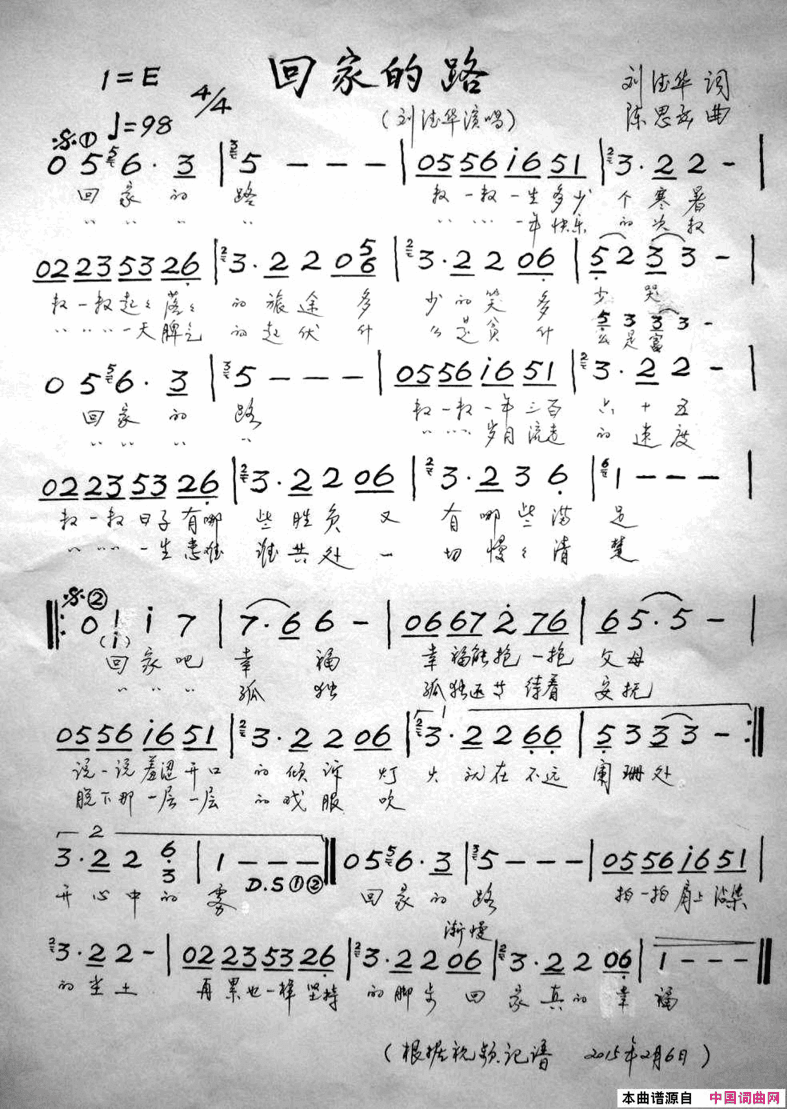 回家的路
1=E 4/4
♩=98
(刘德华演唱)
刘德华 词
陈思 曲
𝄋① 0 5 6· 3 | 5 - - - | 0556 i6 51 | 3· 2 2 - |
回家的 路 数一数一生多少 个寒暑
〃〃〃 〃 〃〃〃一年快乐 的次数
02 23 53 26 | 3· 2 2 0 5/6 | 3· 2 2 06 | 5 2 3 3 - |
数一数起々落々 的旅途多 少的笑多 少哭
〃〃〃一天脾气 的起伏什 么是贫什 么是富
5 3 3 3 -
0 5 6· 3 | 5 - - - | 0556 i6 51 | 3· 2 2 - |
回家的 路 数一数一年三百 六十五
〃〃〃 〃 〃〃〃岁月流走 的速度
02 23 53 26 | 3· 2 2 06 | 3· 2 3 6 | 1 - - - |
数一数日子有哪 些胜负又 有哪些满 足
〃〃〃一生患难 谁共处一 切慢々清 楚
𝄋② ‖: 0 1 i 7 | 7· 6 6 - | 06 67 2 76 | 6 5· 5 - |
(i)
回家吧 幸福 幸福能抱一抱 父母
〃〃〃 孤独 孤独还等待着 安抚
0556 i6 51 | 3· 2 2 06 | 1 3· 2 2 66 | 5 3 3 3 - :‖
说一说羞涩开口 的倾诉灯 火就在不远 阑珊处
脱下那一层一层 的戏服吹
2 3· 2 2 6/3 | 1 - - - ‖ 0 5 6· 3 | 5 - - - | 0556 i6 51 |
开心中的 雾 D.S①② 回家的 路 拍一拍肩上沾染
渐慢
3· 2 2 - | 02 23 53 26 | 3· 2 2 06 | 3· 2 2 06 | 1 - - - ‖
的尘土 再累也一样坚持 的脚步回 家真的幸 福
(根据视频记谱 2015年2月6日)
本曲谱源自 中国词曲网